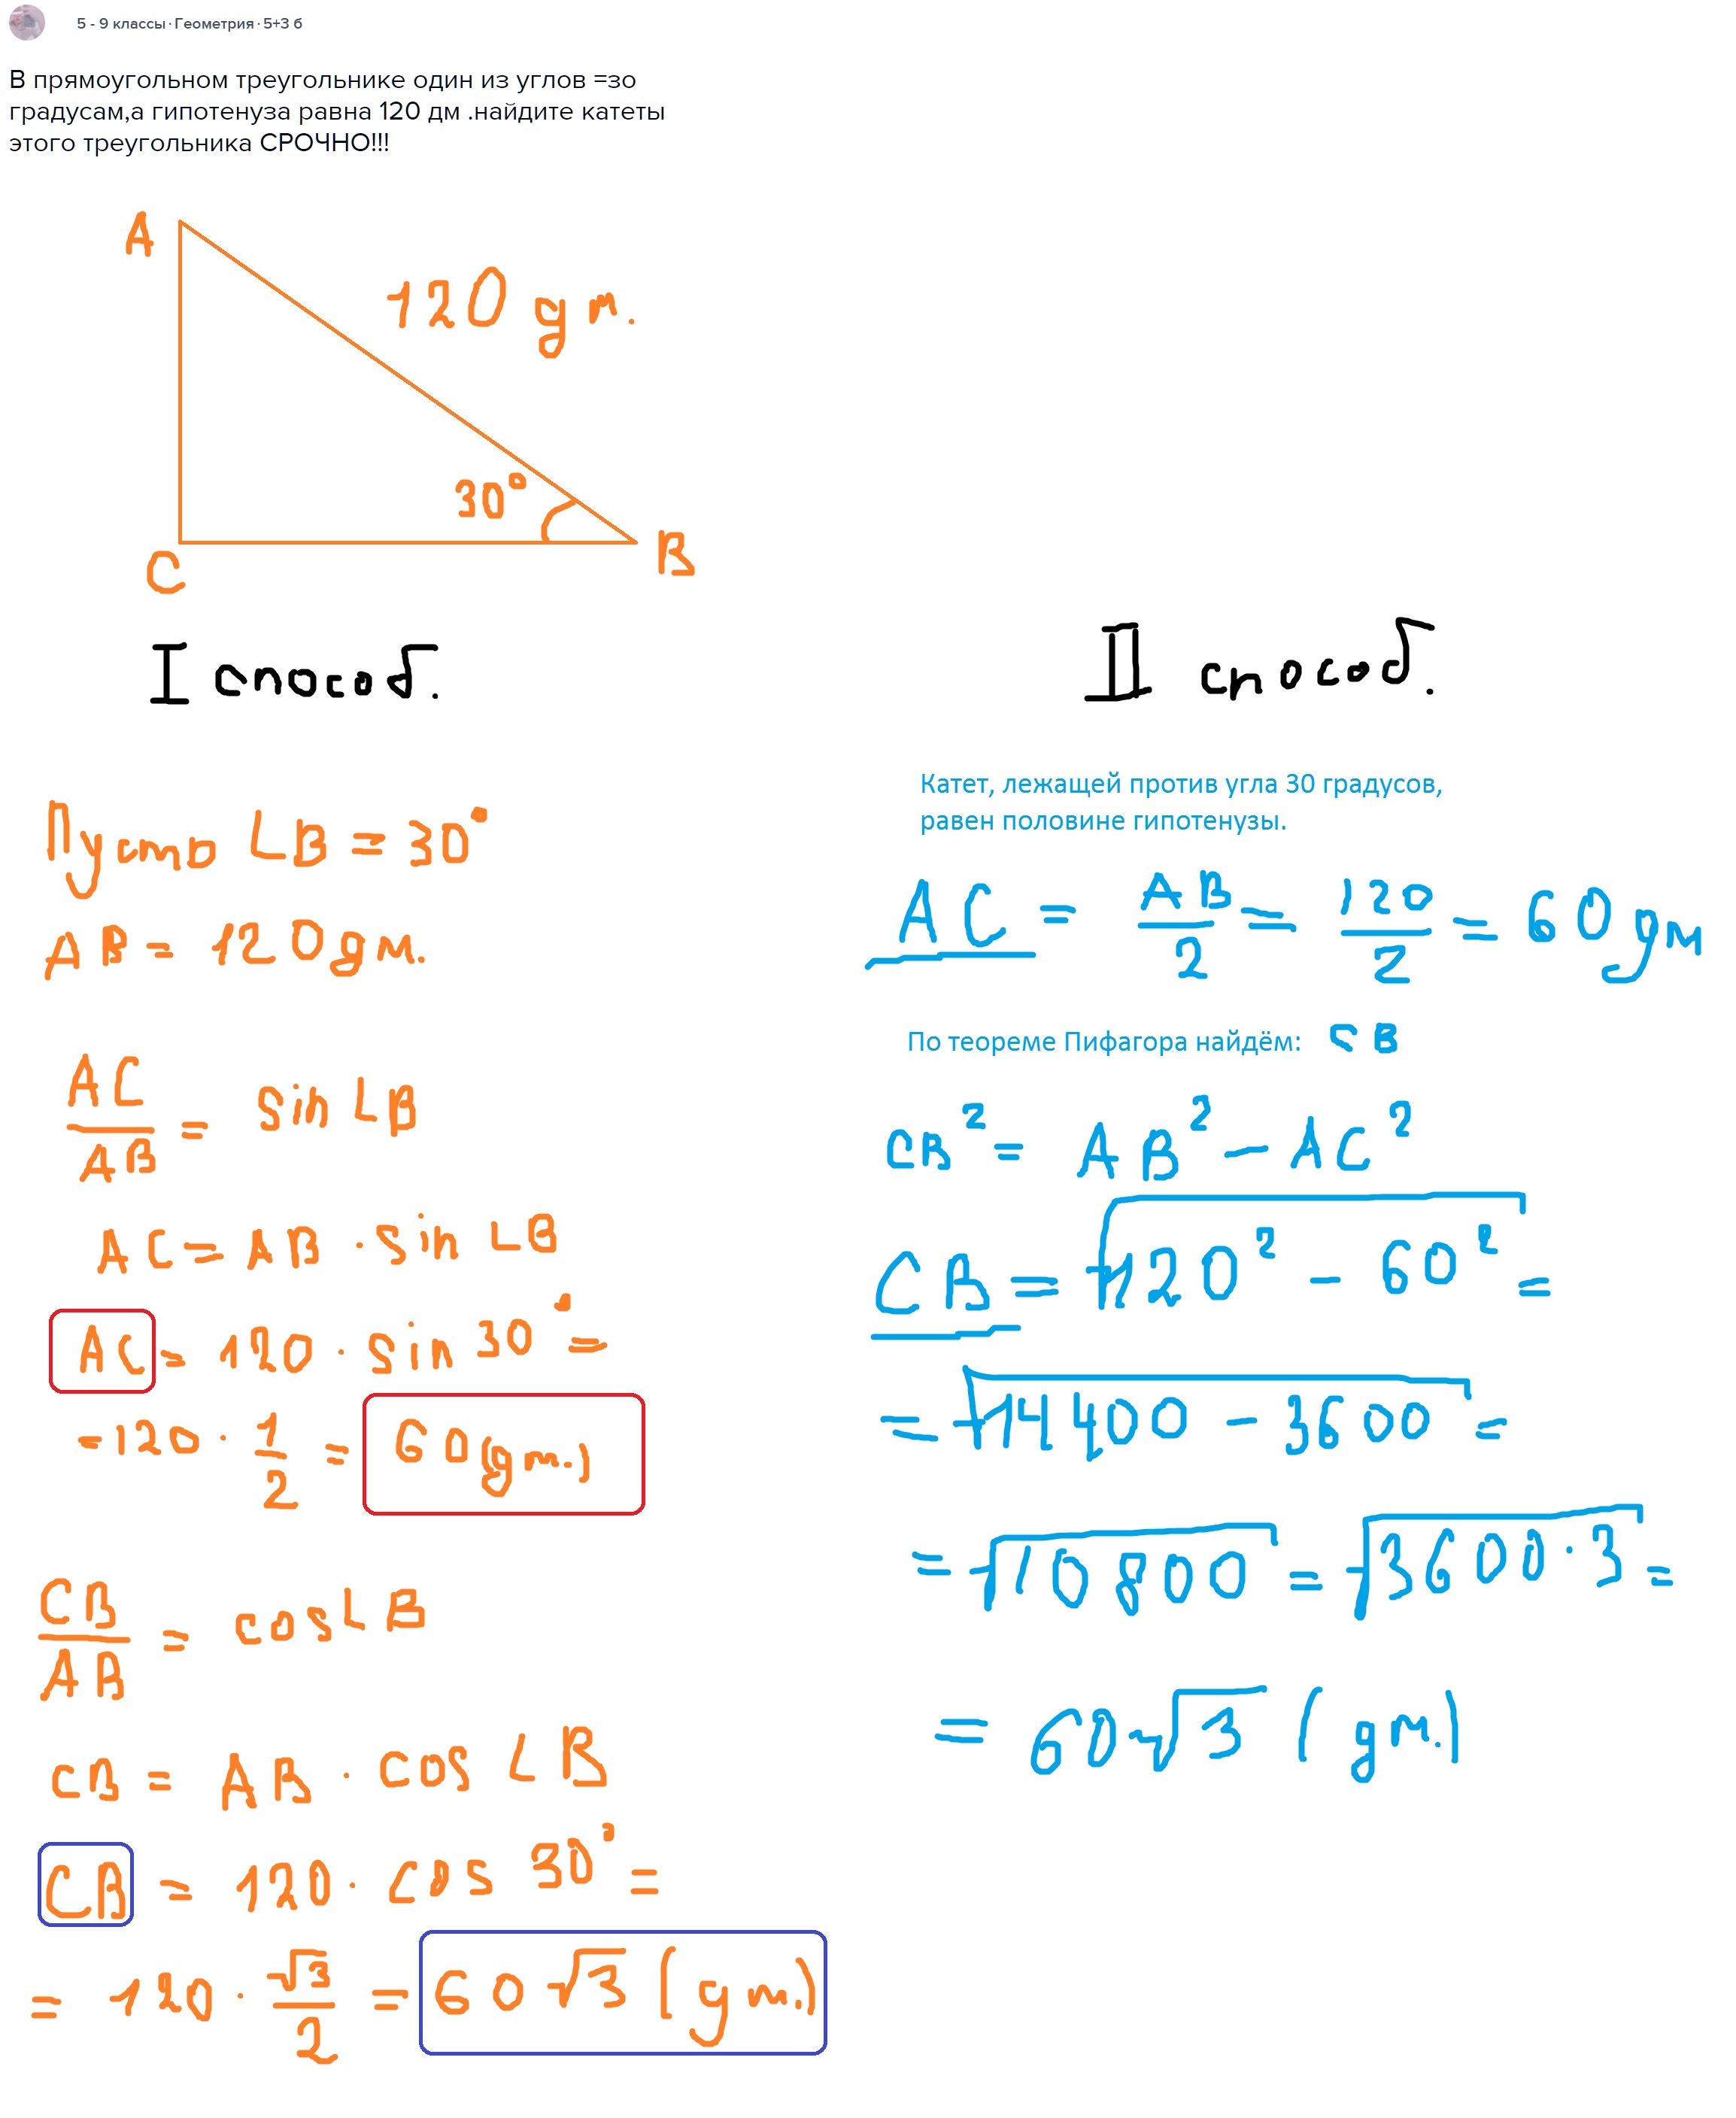 5 - 9 классы · Геометрия · 5+3 б
В прямоугольном треугольнике один из углов =зо
градусам,а гипотенуза равна 120 дм .найдите катеты
этого треугольника СРОЧНО!!!
A
120 дм.
30°
C
B
I способ.
Пусть ∠B = 30°
AB = 120 дм.
AC/AB = sin ∠B
AC = AB · sin ∠B
AC = 120 · sin 30° =
= 120 · 1/2 = 60 (дм.)
CB/AB = cos ∠B
CB = AB · cos ∠B
CB = 120 · cos 30° =
= 120 · √3/2 = 60√3 (дм.)
II способ.
Катет, лежащей против угла 30 градусов,
равен половине гипотенузы.
AC = AB/2 = 120/2 = 60 дм
По теореме Пифагора найдём: CB
CB² = AB² − AC²
CB = √120² − 60² =
= √14400 − 3600 =
= √10800 = √3600·3 =
= 60√3 (дм.)